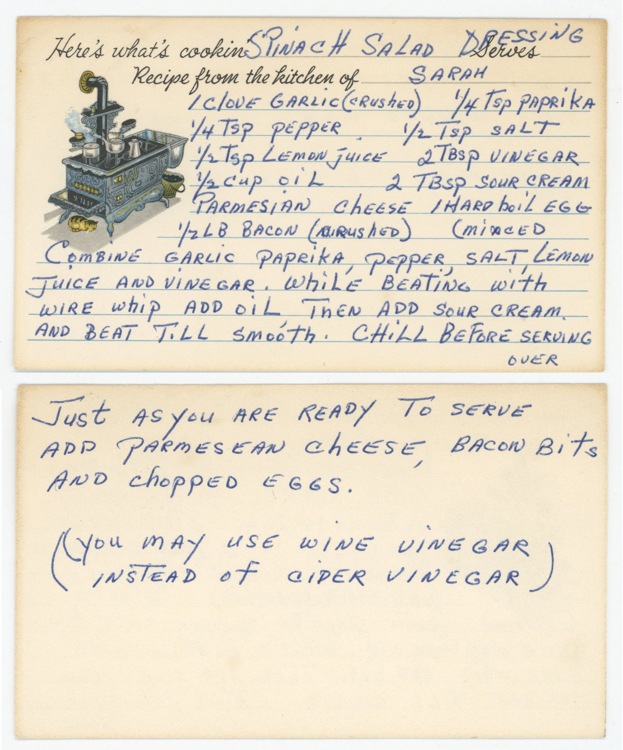 Here's what's cookin SPINACH SALAD DRESSING Serves
Recipe from the kitchen of SARAH
1 CLOVE GARLIC (CRUSHED) 1/4 TSP PAPRIKA
1/4 TSP PEPPER 1/2 TSP SALT
1/2 TSP LEMON JUICE 2 TBSP VINEGAR
1/2 CUP OIL 2 TBSP SOUR CREAM
PARMESIAN CHEESE 1 HARD boiL EGG
1/2 LB BACON (CRUSHED) (MINCED
COMBINE GARLIC PAPRIKA, PEPPER, SALT, LEMON
JUICE AND VINEGAR. WHILE BEATING WITH
WIRE WHIP ADD OIL THEN ADD SOUR CREAM.
AND BEAT TILL SMOOTH. CHILL BEFORE SERVING
OVER
JUST AS YOU ARE READY TO SERVE
ADD PARMESEAN CHEESE, BACON BITS
AND CHOPPED EGGS.
(YOU MAY USE WINE VINEGAR
INSTEAD OF CIDER VINEGAR)